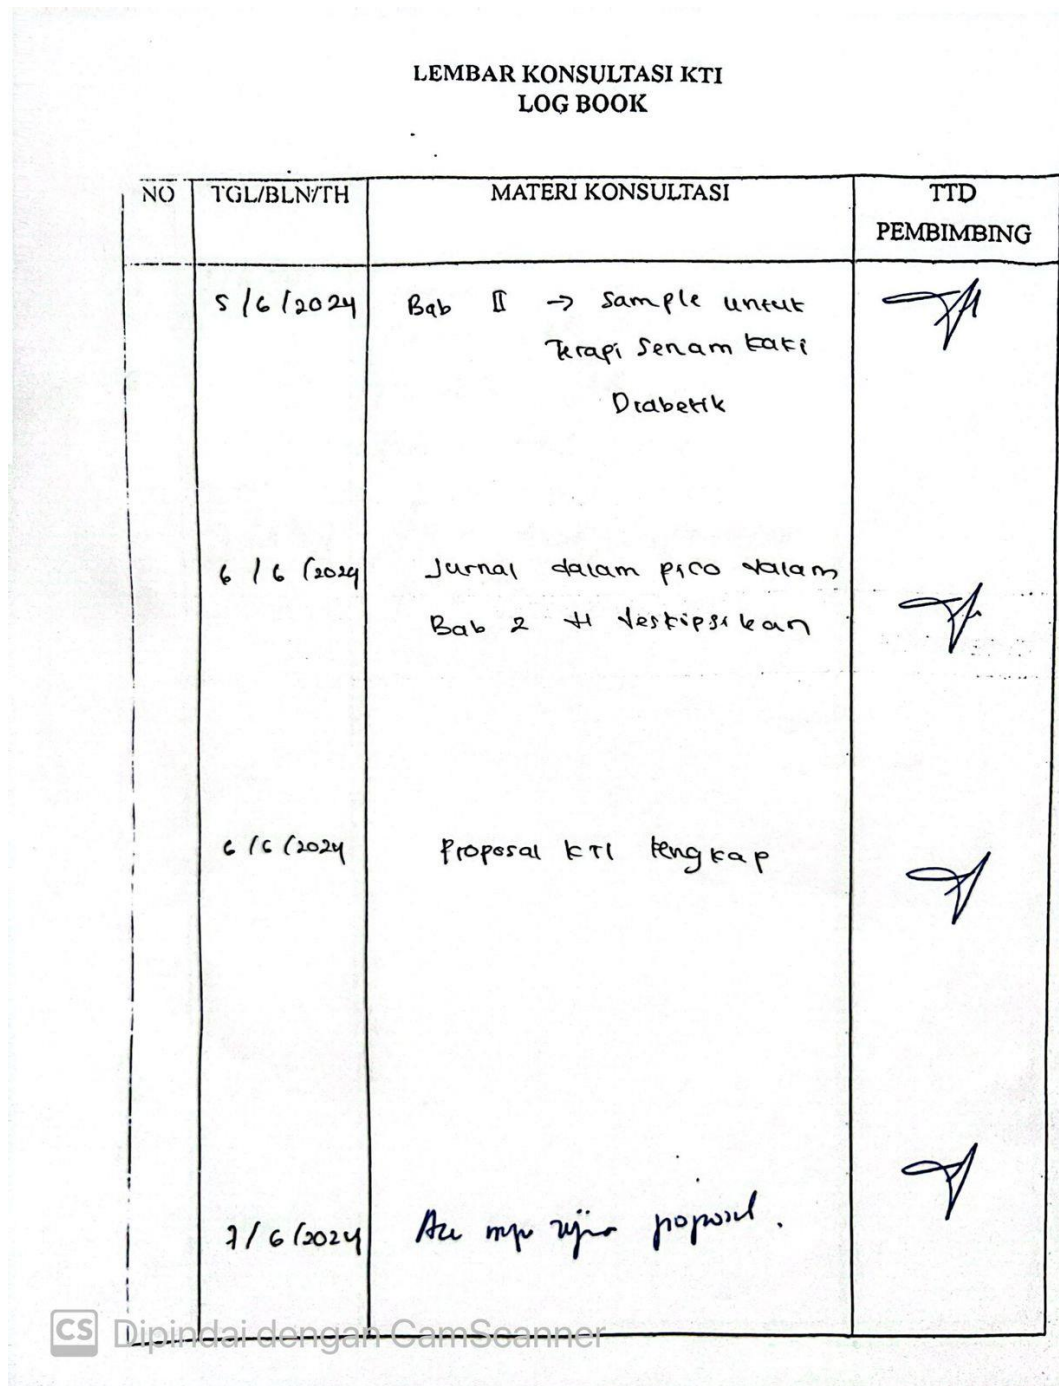 LEMBAR KONSULTASI KTI
LOG BOOK
NO TGL/BLN/TH MATERI KONSULTASI TTD
PEMBIMBING
5/6/2024 Bab II → Sample untuk
Terapi Senam kaki
Diabetik
6/6/2024 Jurnal dalam pico dalam
Bab 2 di deskripsikan
6/6/2024 Proposal KTI lengkap
7/6/2024 Acc ujian proposal.
CS Dipindai dengan CamScanner